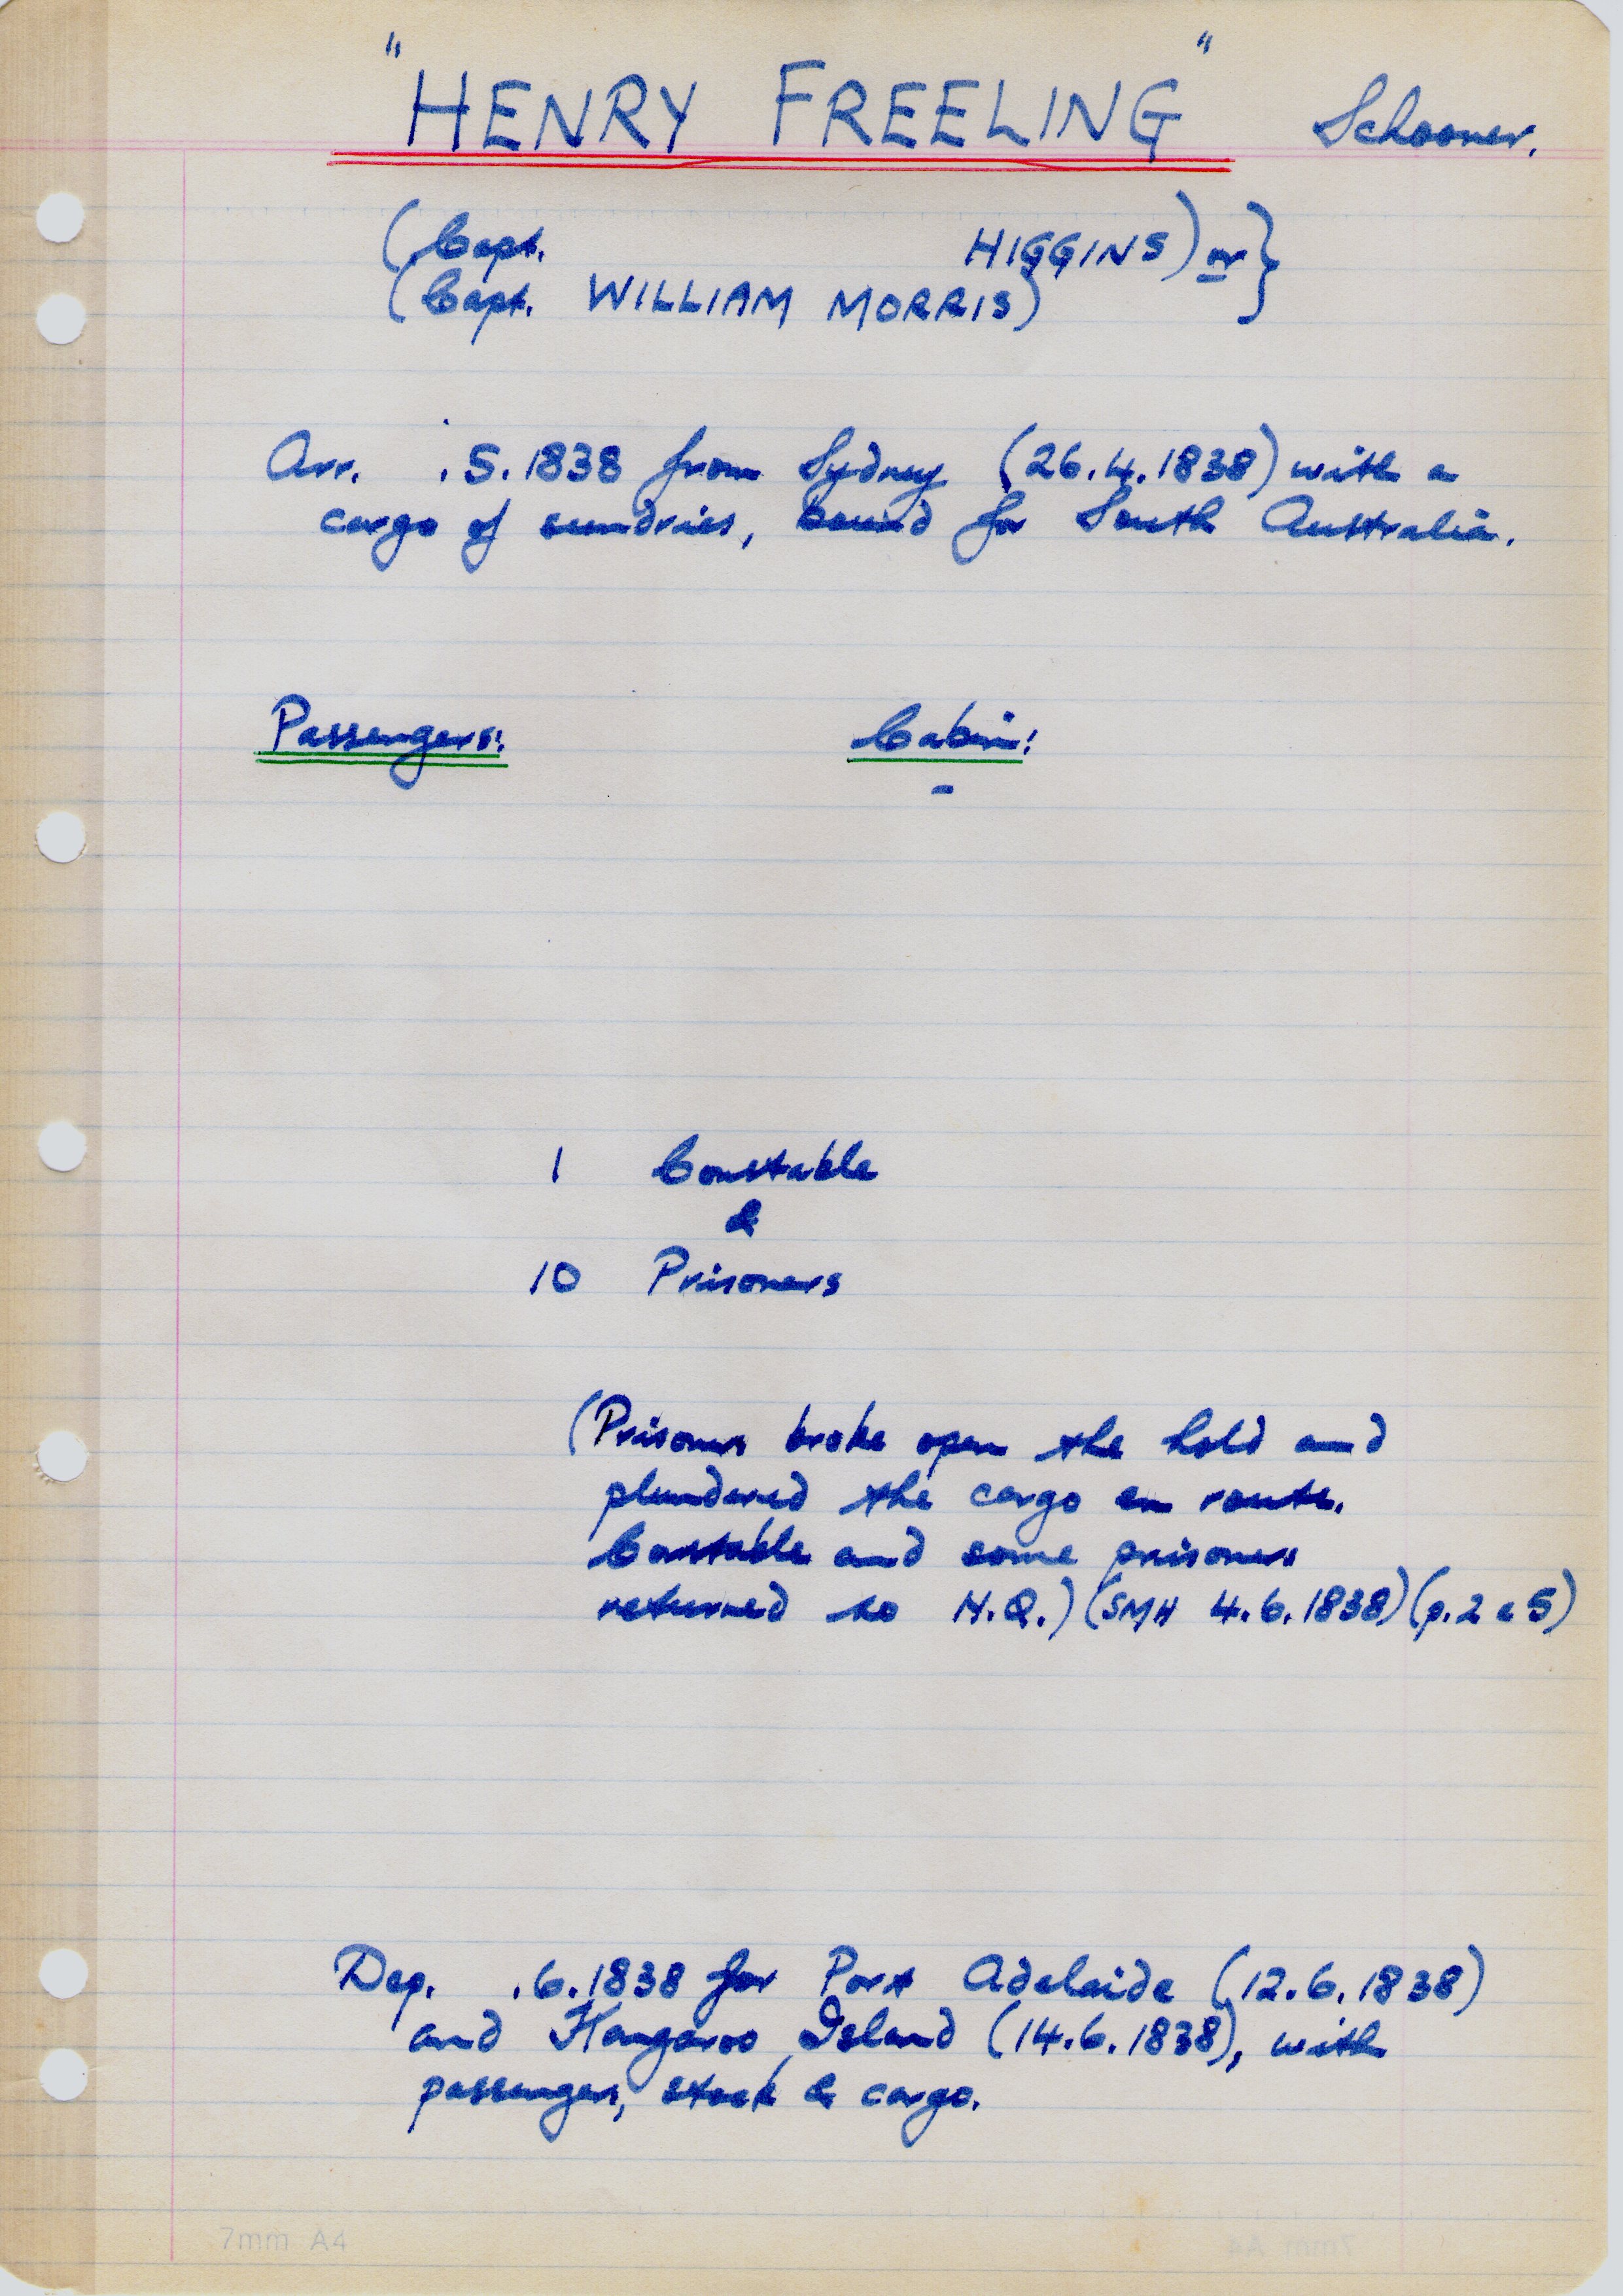 "HENRY FREELING" Schooner.
(Capt. HIGGINS) or}
(Capt. WILLIAM MORRIS)
Arr. .5.1838 from Sydney (26.4.1838) with a
cargo of sundries, bound for South Australia.
Passengers: Cabin:
-
1 Constable
&
10 Prisoners
(Prisoners broke open the hold and
plundered the cargo en route.
Constable and some prisoners
returned to H.Q.) (SMH 4.6.1838) (p.2 c 5)
Dep. .6.1838 for Port Adelaide (12.6.1838)
and Kangaroo Island (14.6.1838), with
passengers, stock & cargo.
7mm A4
7mm A4